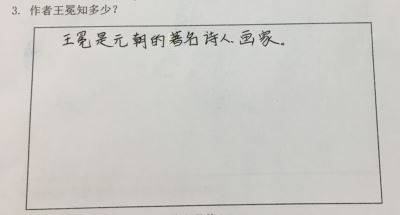 3. 作者王冕知多少?
王冕是元朝的著名诗人、画家。